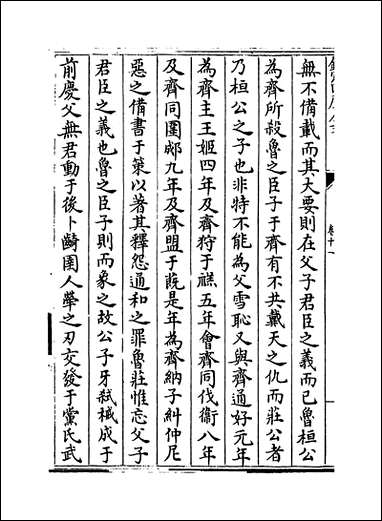 欽定四庫全書
卷十一
無不備載而其大要則在父子君臣之義而已魯桓公
為齊所殺魯之臣子于齊有不共戴天之仇而莊公者
乃桓公之子也非特不能為父雪恥又與齊通好元年
為齊主王姬四年及齊狩于禚五年會齊同伐衞八年
及齊同圍郕九年及齊盟于蔇是年為齊納子糾仲尼
惡之備書于策以著其釋怨通和之罪魯莊惟忘父子
君臣之義也魯之臣子則而象之故公子牙弑械成于
前慶父無君動于後卜齮圉人犖之刃交發于黨氏武